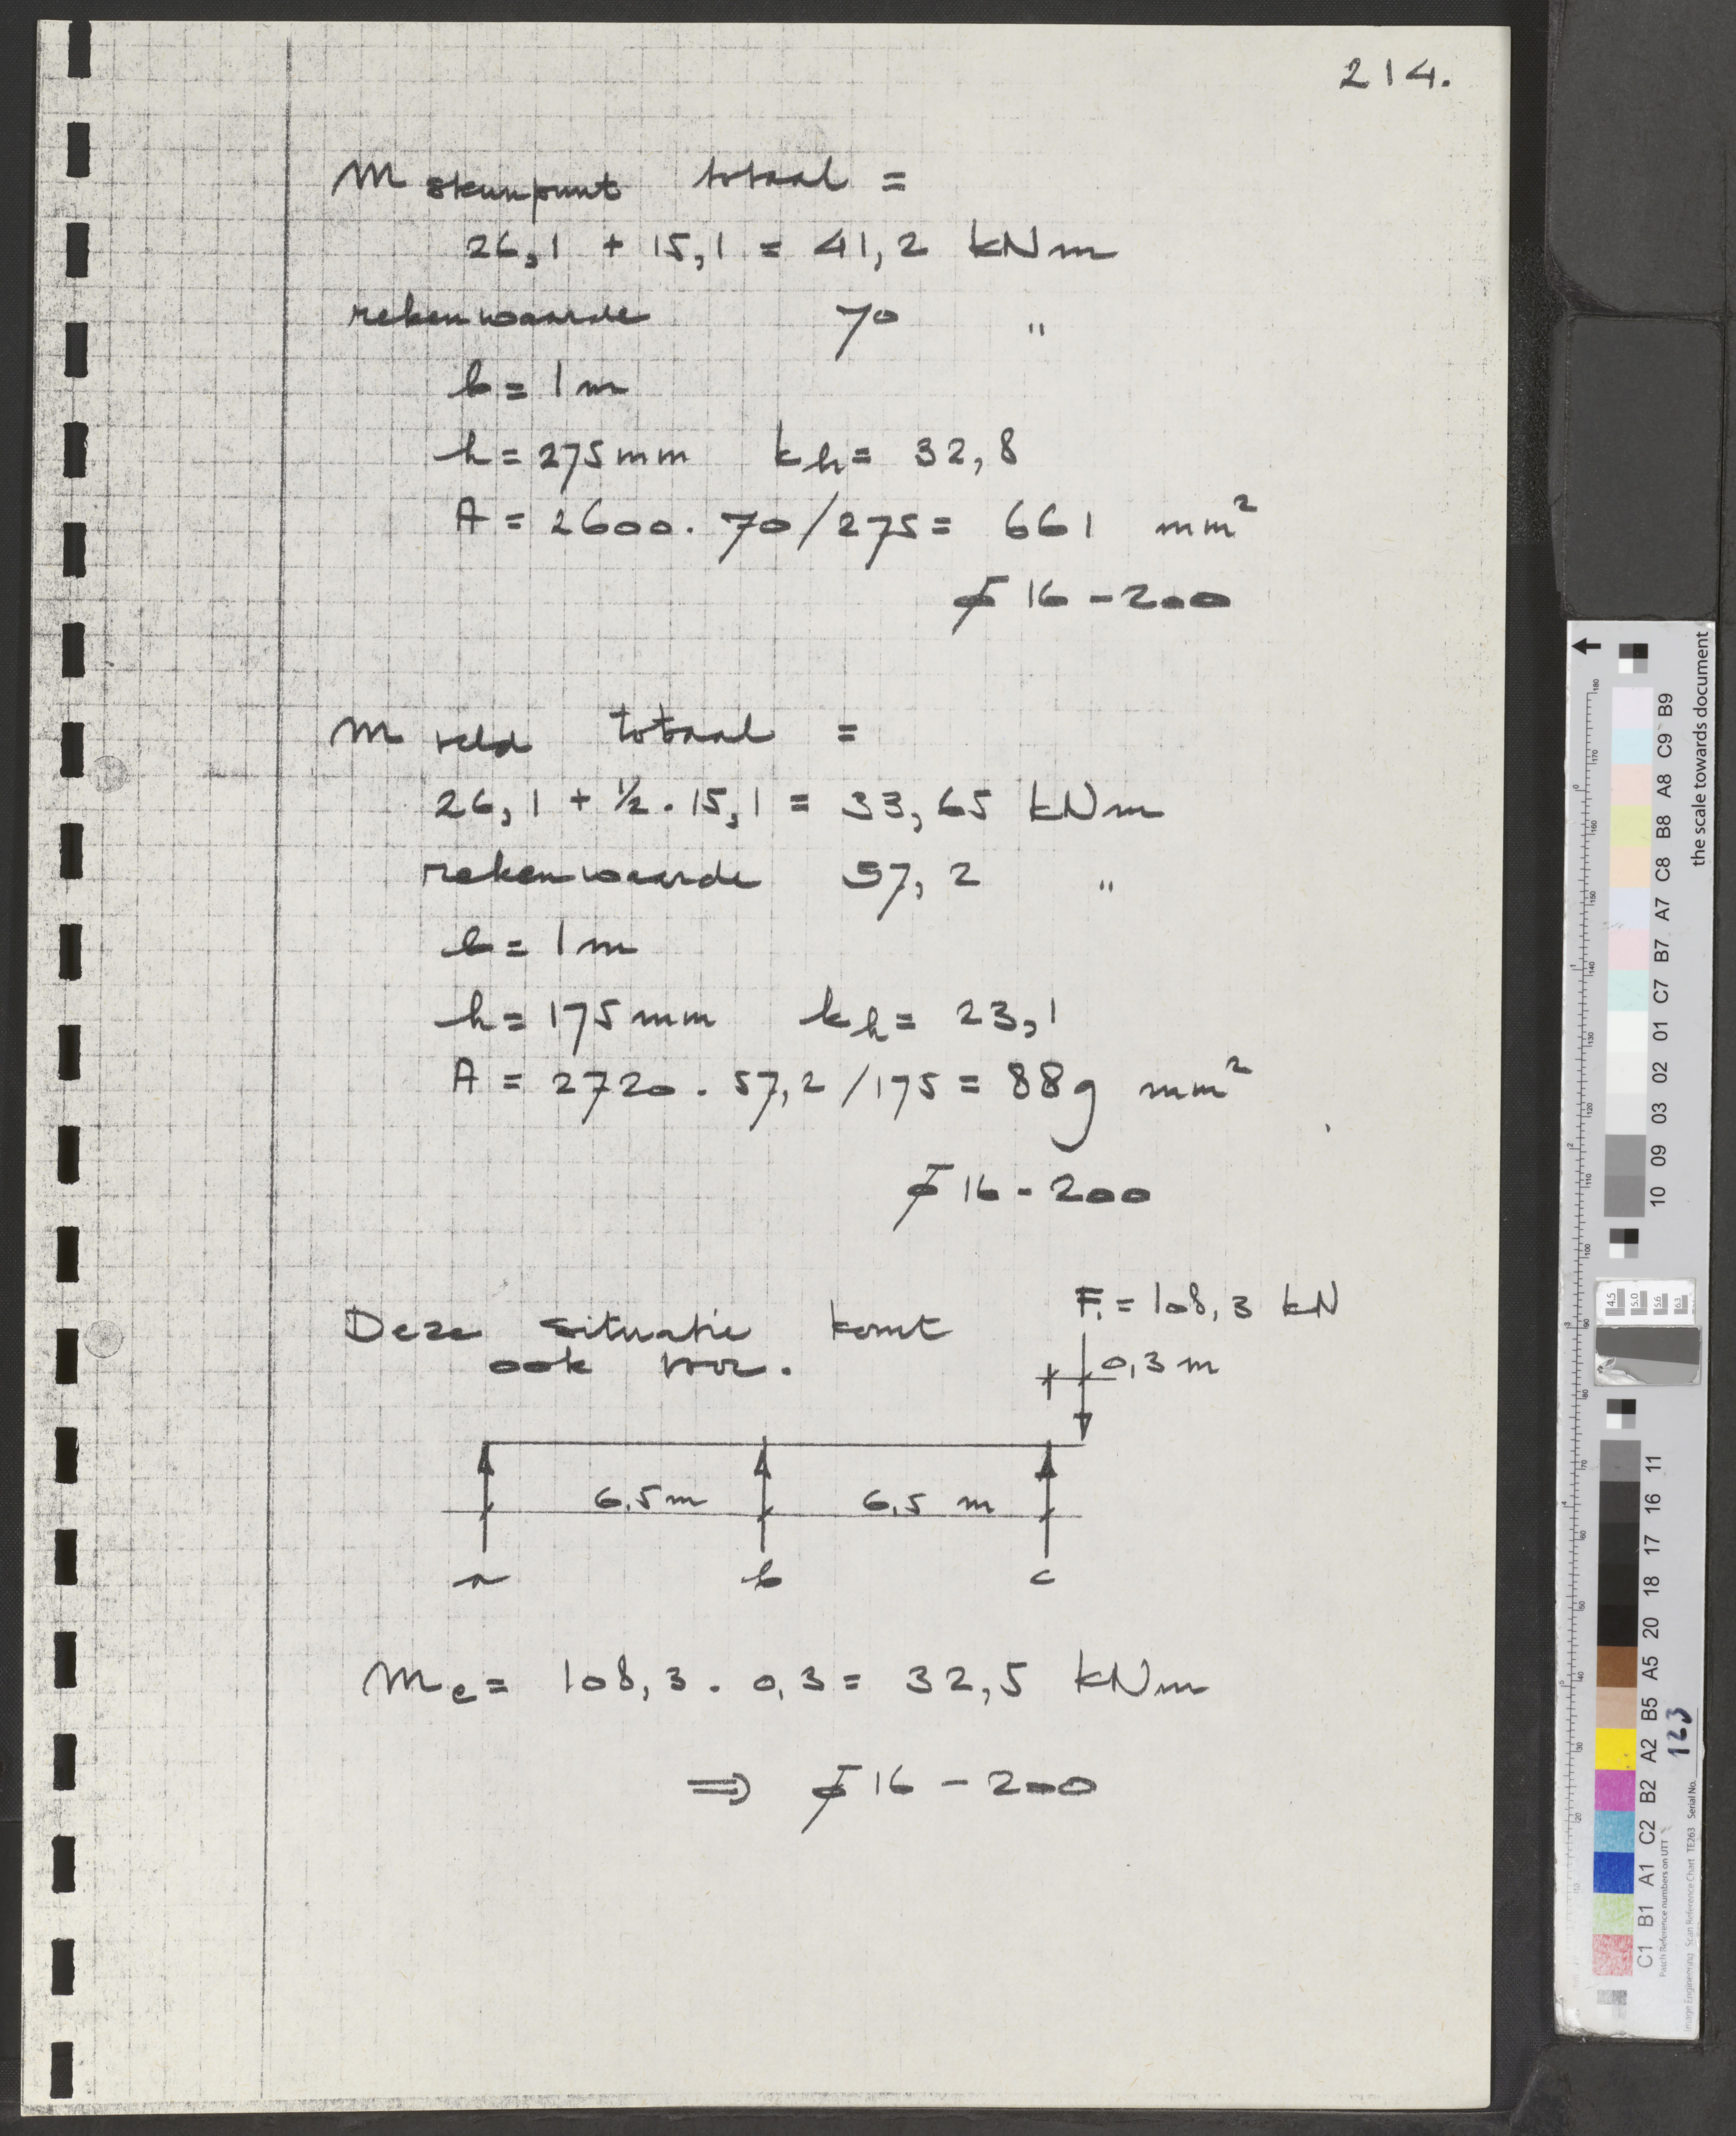 214.
M steunpunt totaal =
26,1 + 15,1 = 41,2 kNm
rekenwaarde 70 "
b = 1 m
h = 275 mm kh = 32,8
A = 2600 . 70/275 = 661 mm²
ø 16 - 200
M veld totaal =
26,1 + ½ . 15,1 = 33,65 kNm
rekenwaarde 57,2 "
b = 1 m
h = 175 mm kh = 23,1
A = 2720 . 57,2 /175 = 889 mm²
ø 16 - 200
Deze situatie komt
ook voor.
F = 108,3 kN
0,3 m
6,5 m 6,5 m
a b c
Mc = 108,3 . 0,3 = 32,5 kNm
⇒ ø 16 - 200
the scale towards document
C1 B1 A1 C2 B2 A2 B5 A5 20 18 17 16 11
10 09 03 02 01 C7 B7 A7 C8 B8 A8 C9 B9
4.5
5.0
5.6
6.3
Patch Reference numbers on UTT
Image Engineering Scan Reference Chart TE263 Serial No. 123